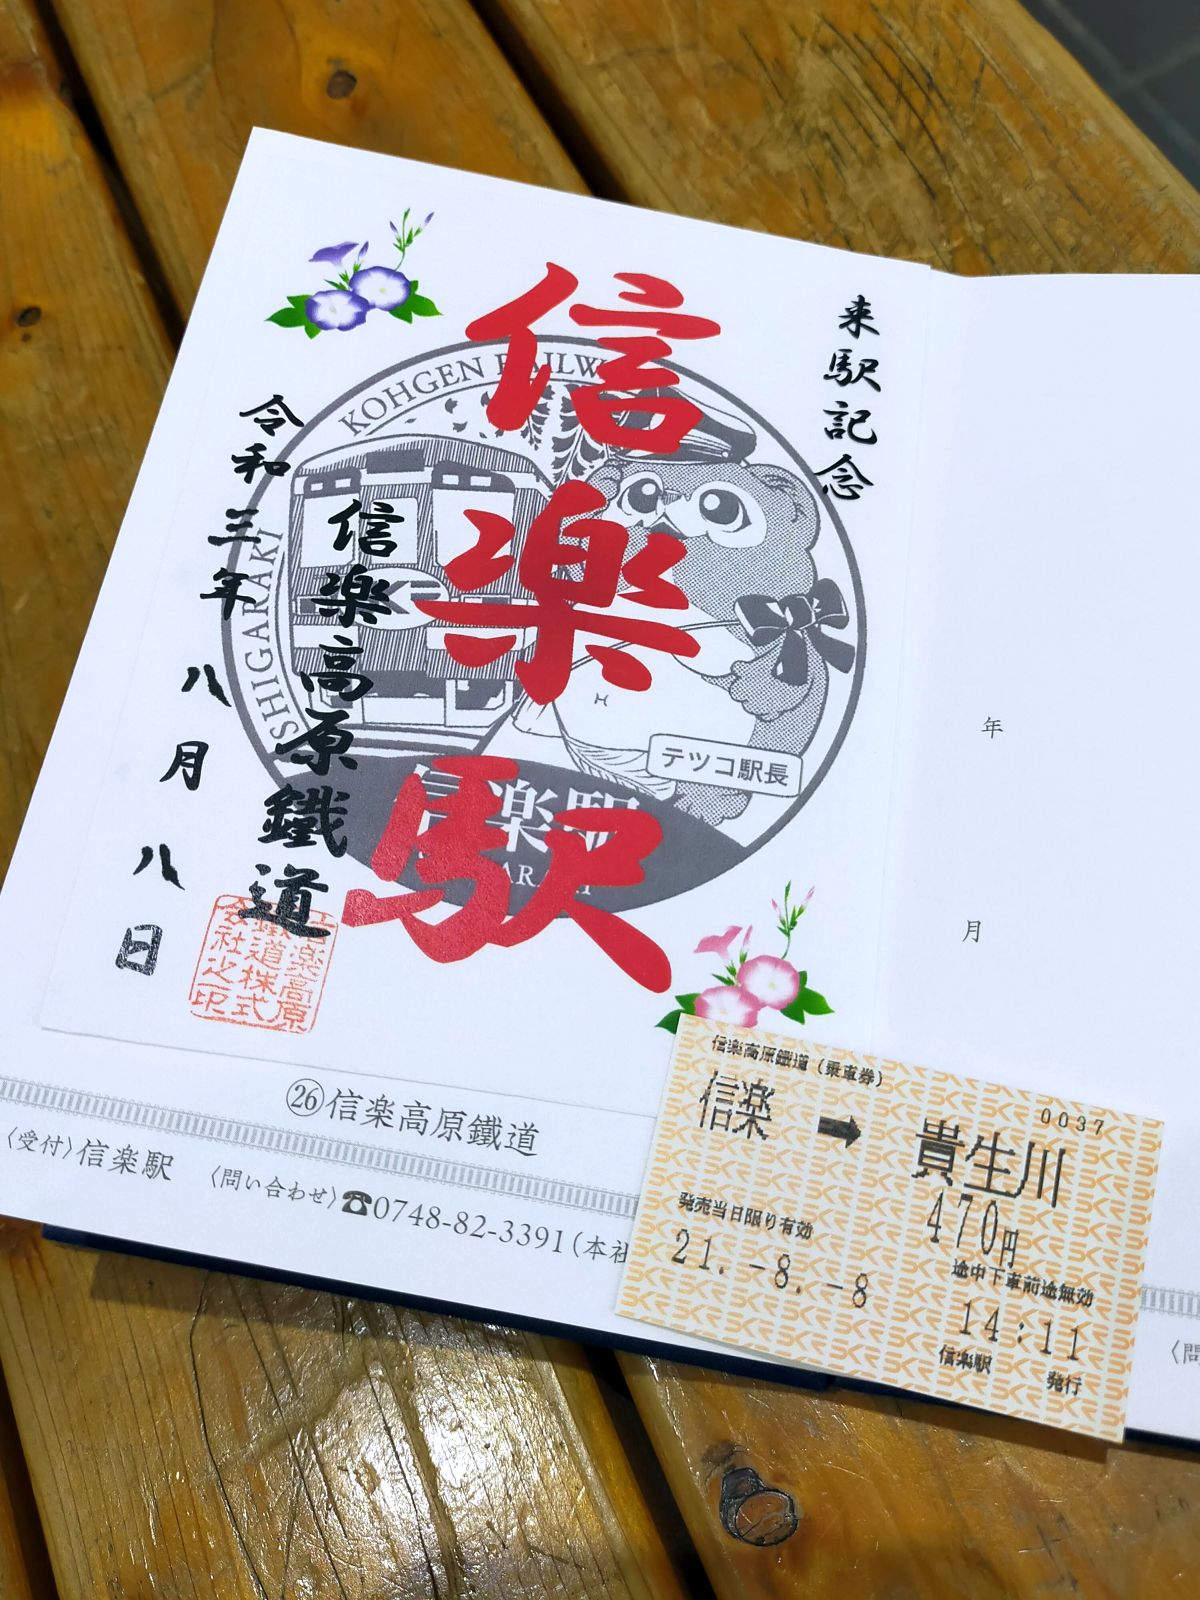 来駅記念
信楽駅
KOHGEN RAILW
SHIGARAKI
テツコ駅長
信楽駅
信楽高原鐵道
令和三年 八月 八日
信楽高原
鐵道株式
会社之印
㉖信楽高原鐵道
〈受付〉信楽駅 〈問い合わせ〉☎0748-82-3391(本社
年
月
〈問
信楽高原鐵道(乗車券)
0037
信楽 ➡ 貴生川
470円
発売当日限り有効
途中下車前途無効
21.-8.-8
14:11
信楽駅 発行